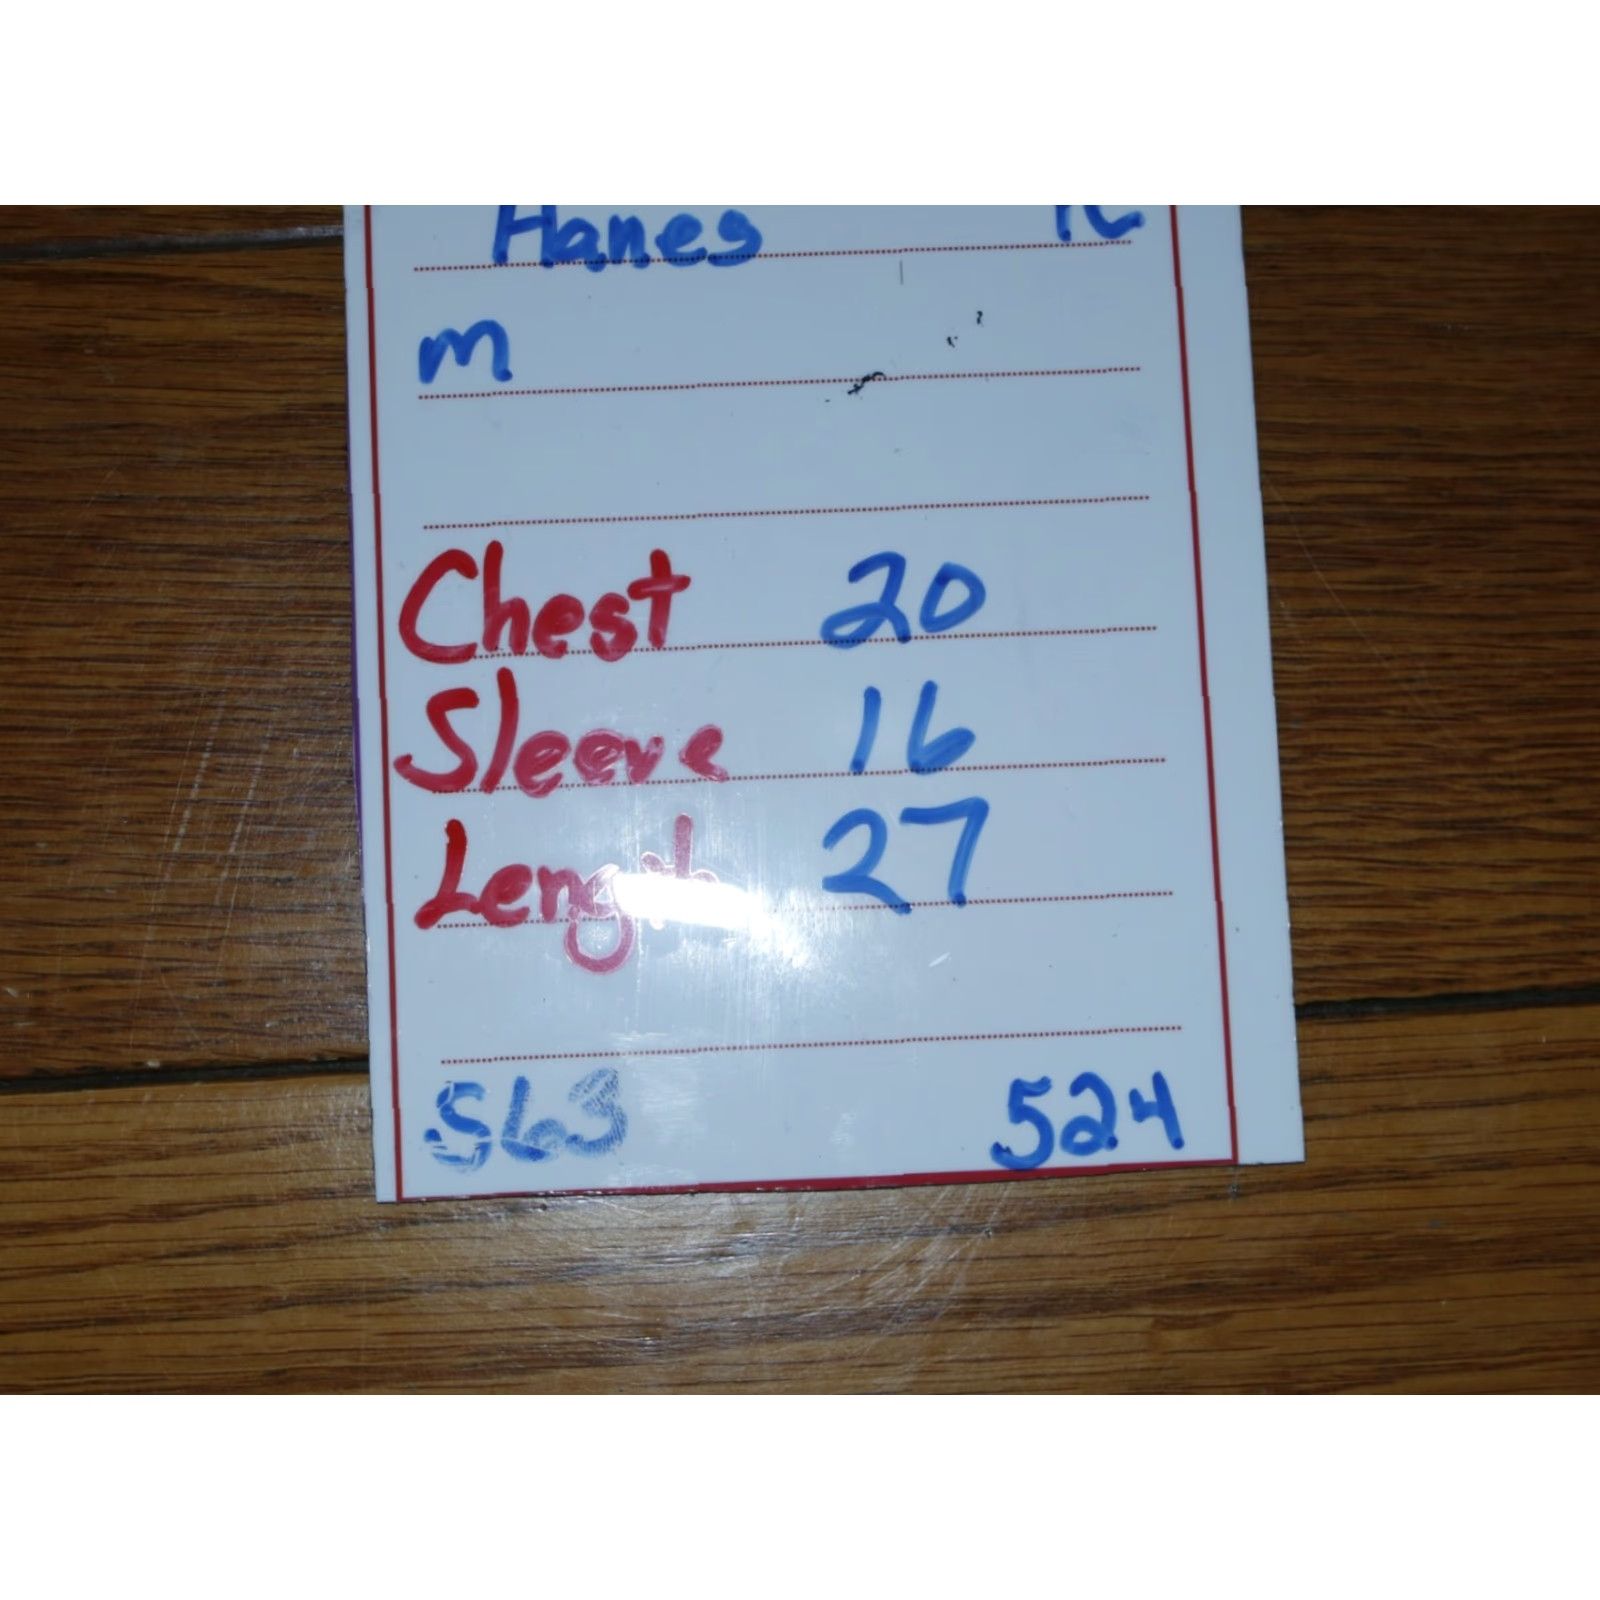 Hanes
m
Chest 20
Sleeve 16
Length 27
563 524